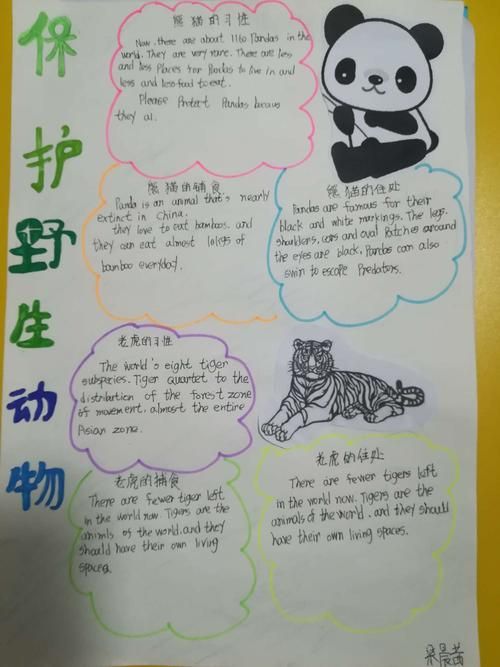 保
护
野
生
动
物
熊猫的习性
Now. there are about 1160 Pandas in the
world. They are very rare. There are less
and less Places for Pandas to live in and
less and less food to eat.
Please Protect Pandas
they
熊猫的捕食
Panda is an animal that's nearly
extinct in China.
they love to eat bamboos. and
they can eat almost
bamboo everyday.
熊猫的住处
Pandas are famous for their
black and white markings. The legs.
shoulders, ears and oval Patches around
the eyes are black. Pandas can also
swin to escape Predators.
老虎的习性
The world's eight tiger
subspecies. Tiger quartet to the
distribution of the forest zone
of movement. almost the entire
Asian zone.
老虎的捕食
There are fewer tiger left
in the world now. Tigers are the
animls of the world. and they
should have their own living
spaces
老虎的住处
There are fewer tigers left
in the world now. Tigers are the
animals of the world. and they should
have their own living spaces.
晨茜